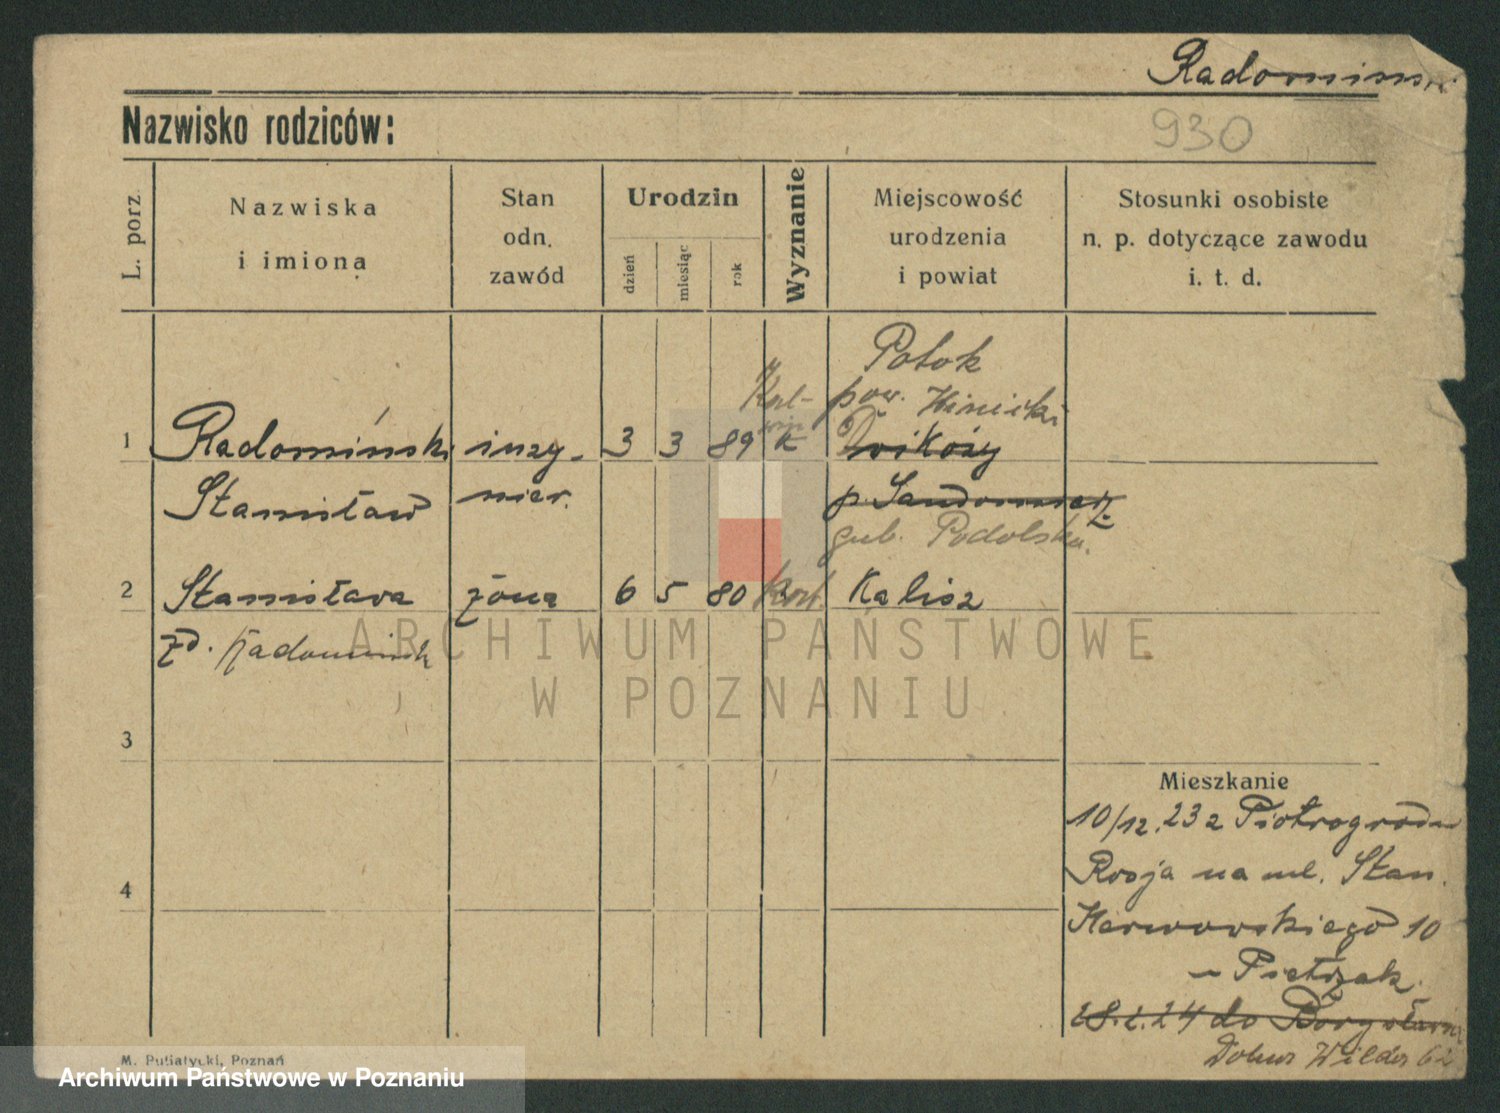 Radomińsk
Nazwisko rodziców:
930
L. porz.
Nazwiska
i imiona
Stan
odn.
zawód
Urodzin
dzień
miesiąc
rok
Wyznanie
Miejscowość
urodzenia
i powiat
Stosunki osobiste
n. p. dotyczące zawodu
i. t. d.
Potok
pow. Winicki
1 Radomiński inży- 3 3 89 K
Stanisław nier. p. Sandomierz
gub. Podolska.
2 Stanisława żona 6 5 80 Kat. Kalisz
zd. Radomińsk
3
4
Mieszkanie
10/12.23 z Piotrogrodu
Rosja na ul. Stan.
Karwowskiego 10
Pietrzak.
28.2.24 do Borysławia
Dolna Wilda 62
M. Putiatycki, Poznań
ARCHIWUM PAŃSTWOWE
W POZNANIU
Archiwum Państwowe w Poznaniu